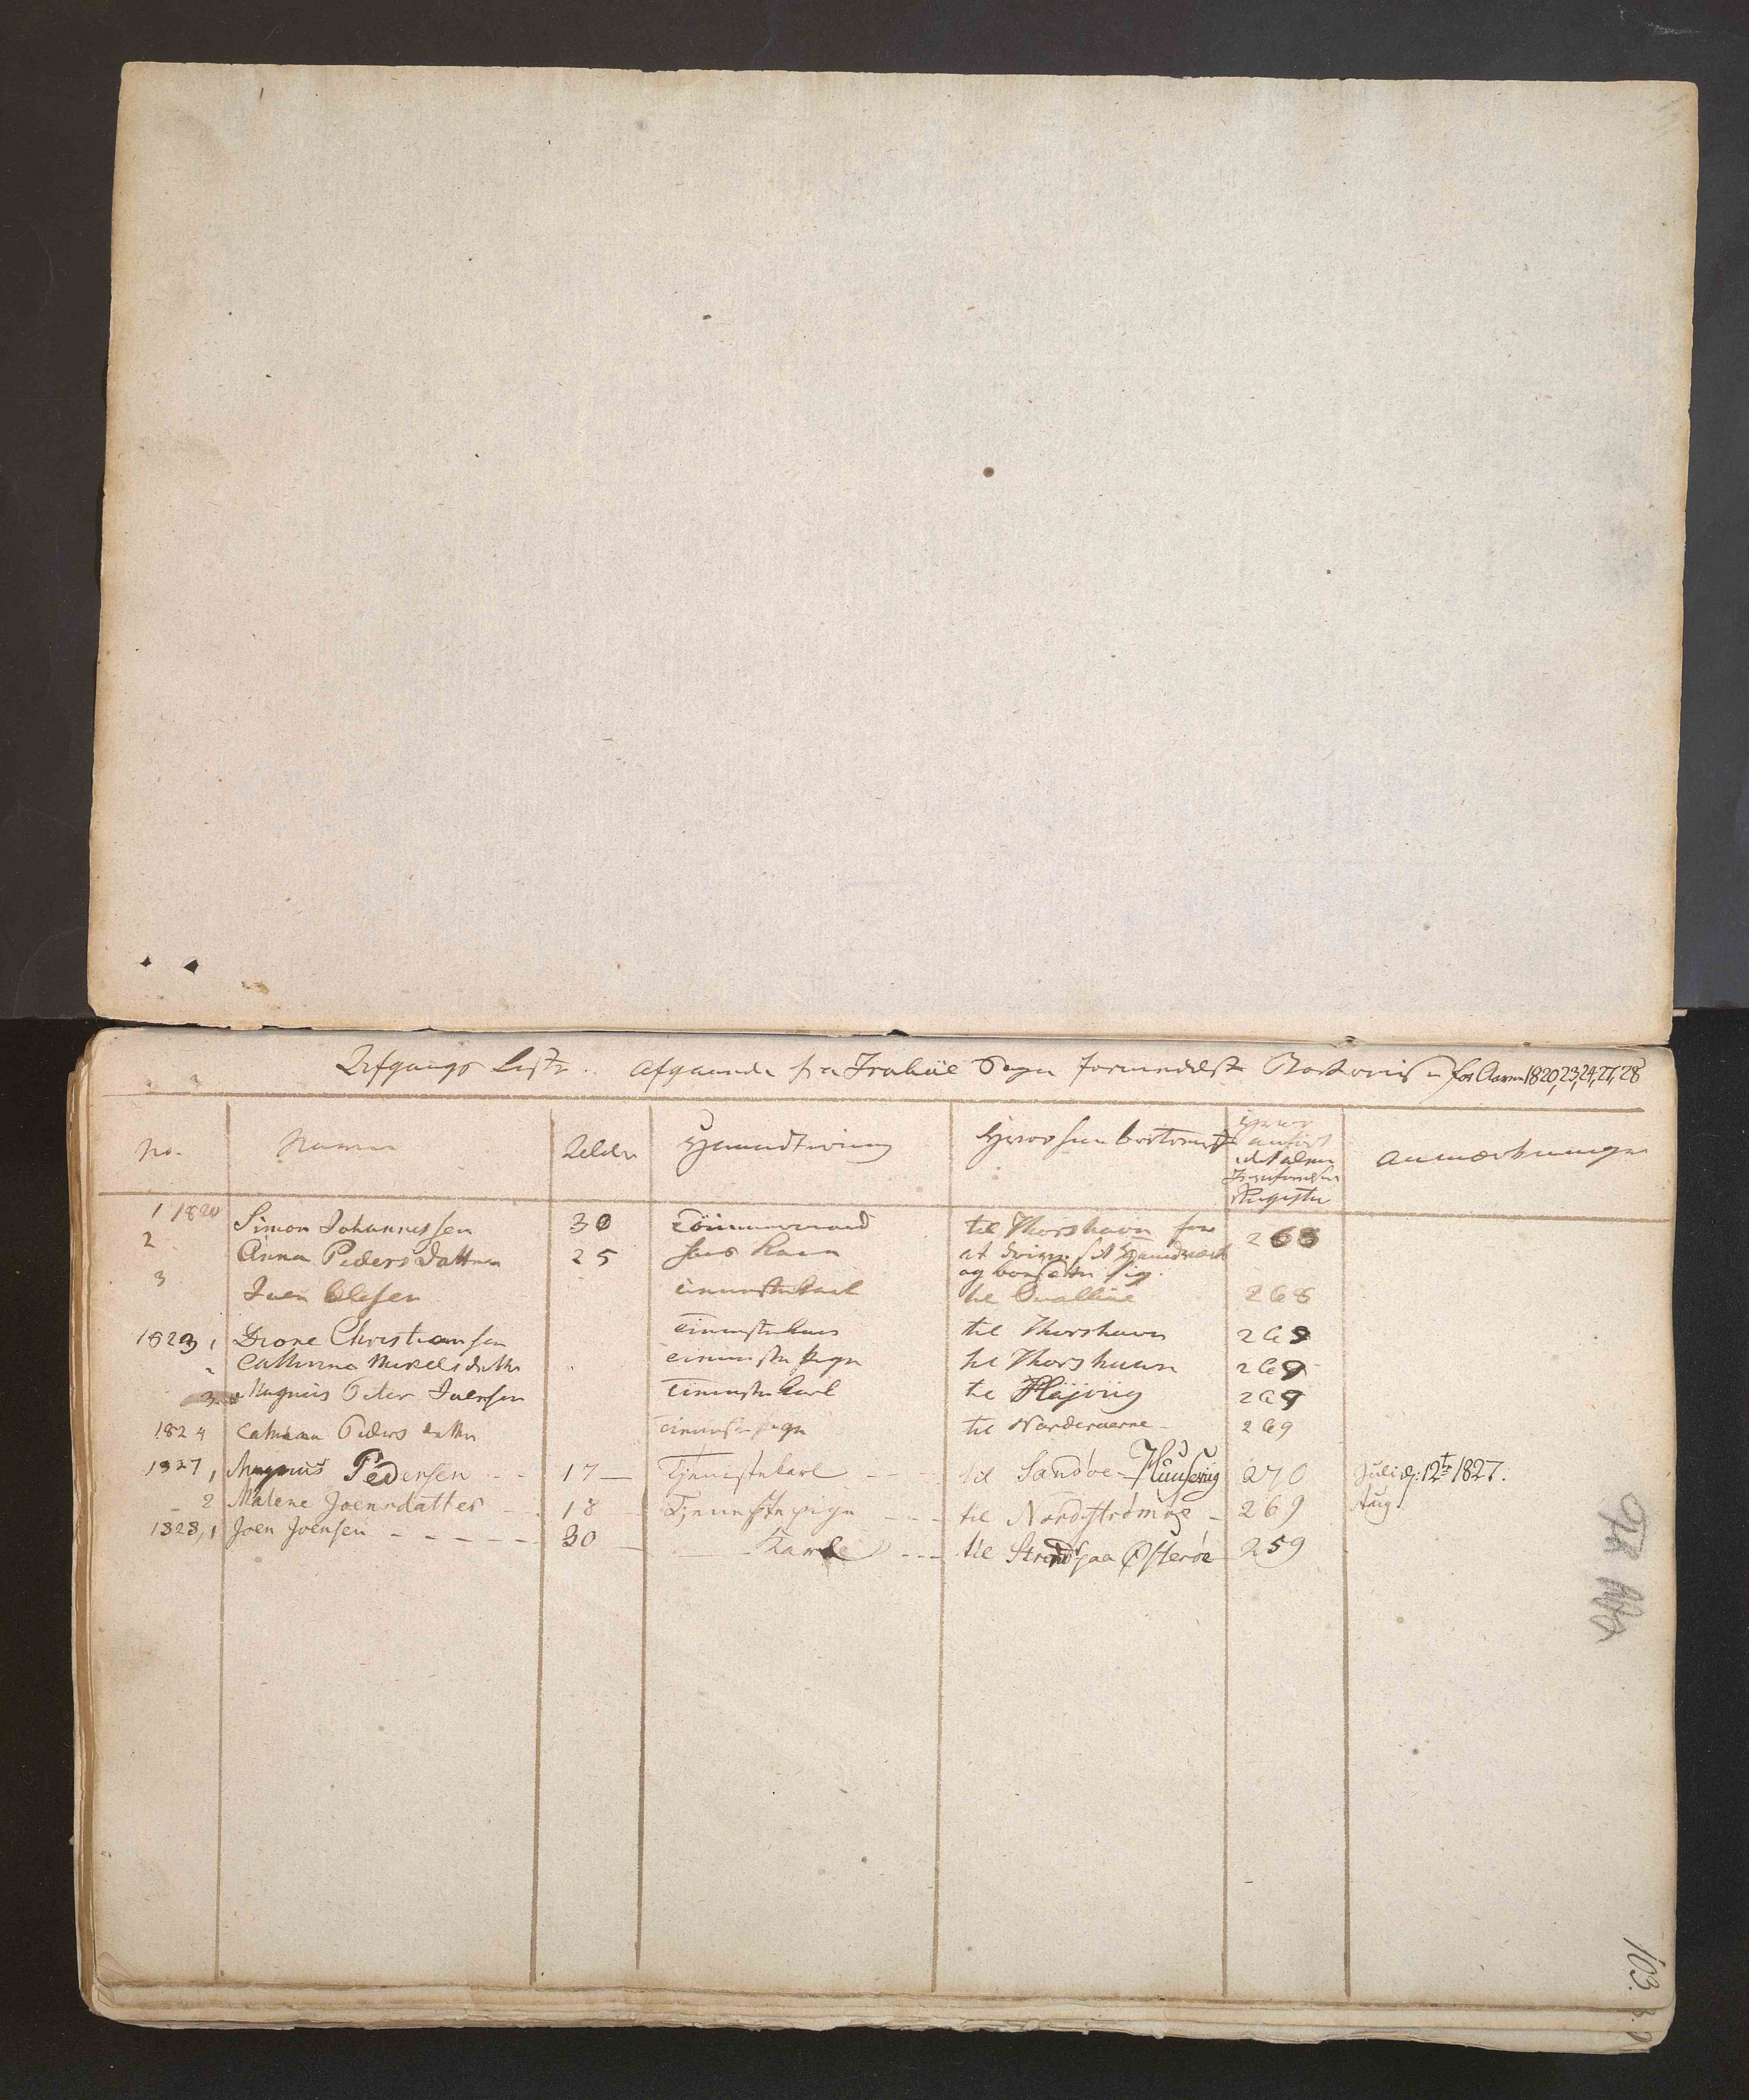 Afgangs Liste. afgaaende fra Trabüe Sogn formedelst Bortreise for Aaren 1820,23,24,27,28
No. Navn Alder Haandtering Hvorhen bortreist Hvor anført i det alm. Jevnførelses Register Anmærkninger
1 1820 Simon Johannessen 30 Tömmermand til Thorshavn for 268
2 Anna Peders Datter 25 hans Kone at drive sit Haandværk
og bosætte sig.
3 Joen Olesen Tienestekarl til Qvalböe 268
1823, 1 Christiansen Tieneste til Thorshavn 269
2 Cathrina Mikkelsdatter Tieneste pige til Thorshavn 269
3 Magnus Peter Joensen Tienestekarl til Højvig 269
1824 Peders datter Tieneste pige til Norderøerne 269
1827, 1 Magnus Pedersen 17 Tjenestekarl til Sandøe Huusevig 270 Juli d: 12te 1827.
2 Malene Joensdatter 18 Tjenestepige til Nordstrømøe 269 Aug.
1828, 1 Joen Joensen 30 Karl til Strend paa Østerøe 259
103.